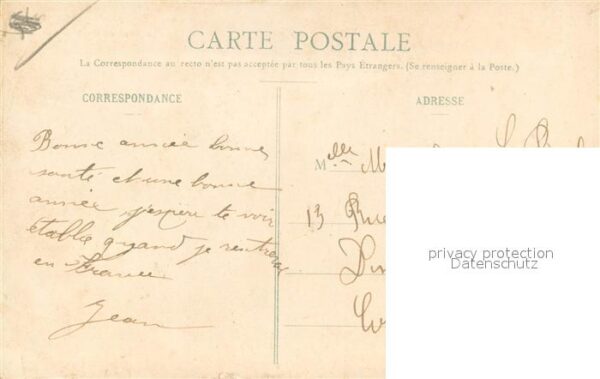 CARTE POSTALE
La Correspondance au recto n'est pas acceptée par tous les Pays Étrangers. (Se renseigner à la Poste.)
CORRESPONDANCE
ADRESSE
Bonne année bonne
santé et une bonne
année j'espère te voir
établie quand je rentrerai
en France
Jean
Mlle
13 Rue
privacy protection
Datenschutz